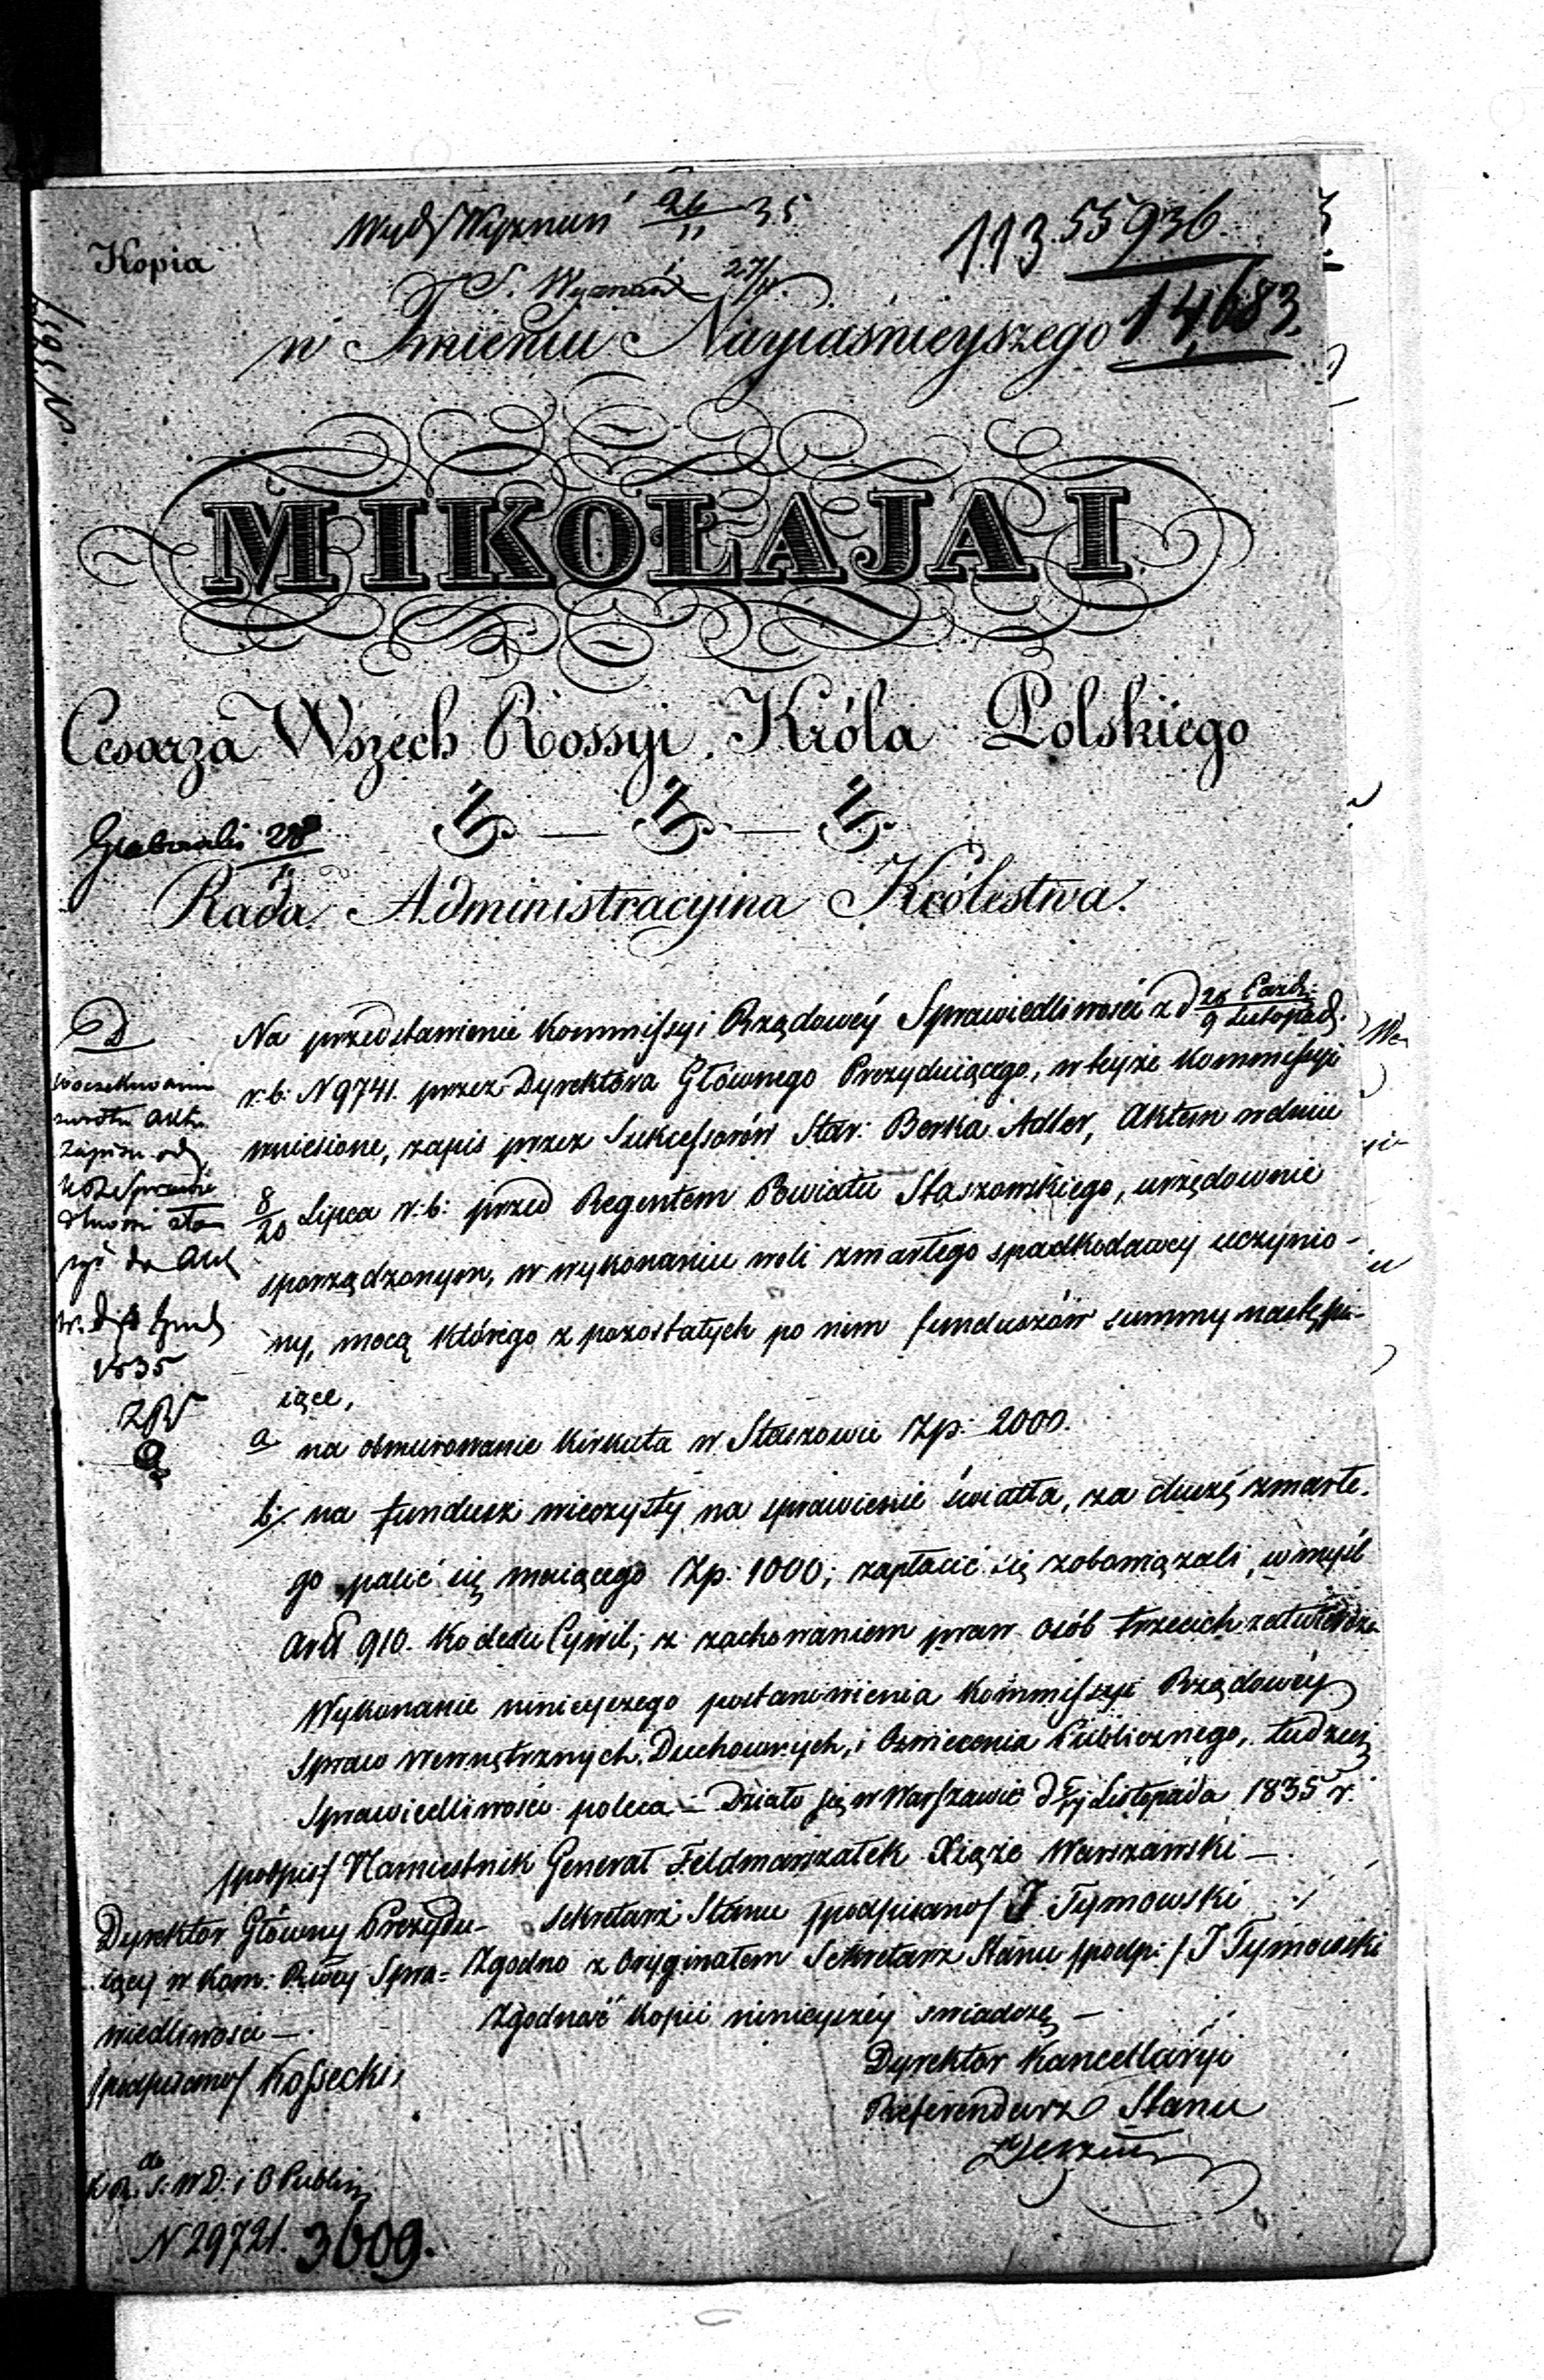 Kopia
Wydz Wyznań 26/11 35
113. 55936.
S. Wyznań 27/11
14,683.
w Imieniu Nayiaśnieyszego
MIKOŁAJA I
Cesarza Wszech Rossyi, Króla Polskiego
28
Rada Administracyina Królestwa.
Na przedstawienie Kommissyi Rządowéy Sprawiedliwości z d 28 Paźdz: / 9 Listopad:
r: b: N 9741. przez Dyrektora Głównego Prezyduiącego, w teyże Kommissyi
wniesione, zapis przez Sukcessorów Star: Berka Adler, Aktem w dniu
8/20 Lipca r: b: przed Regentem Powiatu Staszowskiego, urzędownie
sporządzonym, w wykonaniu woli zmarłego spadkodawcy uczynio-
ny, mocą którego z pozostałych po nim funduszów summy następu-
iące,
a na obmurowanie kirkuta w Staszowie Zp: 2000.
b: na fundusz wieczysty na sprawienie światła, za duszę zmarłe-
go palić się maiącego Zp: 1000; zapłacić się zobowiązali, w myśl
Art 910. Kodexu Cywil; z zachowaniem praw osób trzecich zatwierdza
Wykonanie ninieyszego postanowienia Kommissyi Rządowéy
Spraw Wewnętrznych, Duchownych, i Oświecenia Publicznego, tudzież
Sprawiedliwości poleca. – Działo się w Warszawie d Listopada 1835 r.
/podpis/ Namiestnik Generał Feldmarszałek Xiąże Warszawski –
Sekretarz Stanu /podpisano/ J Tymowski
Zgodno z Oryginałem Sekretarz Stanu /podp:/ J Tymowski
Dyrektor Główny Prezydu-
iący w Kom: Rwéy Spra-
wiedliwości –
/podpisano/ Kossecki,
Zgodność Kopii ninieyszéy świadczę –
Dyrektor Kancellaryi
Referendarz Stanu
do
K R. S: W D: i O Publin
N 29721. 3609.
D
zwrotu Aktu
Zapisu od
do Akt
1835